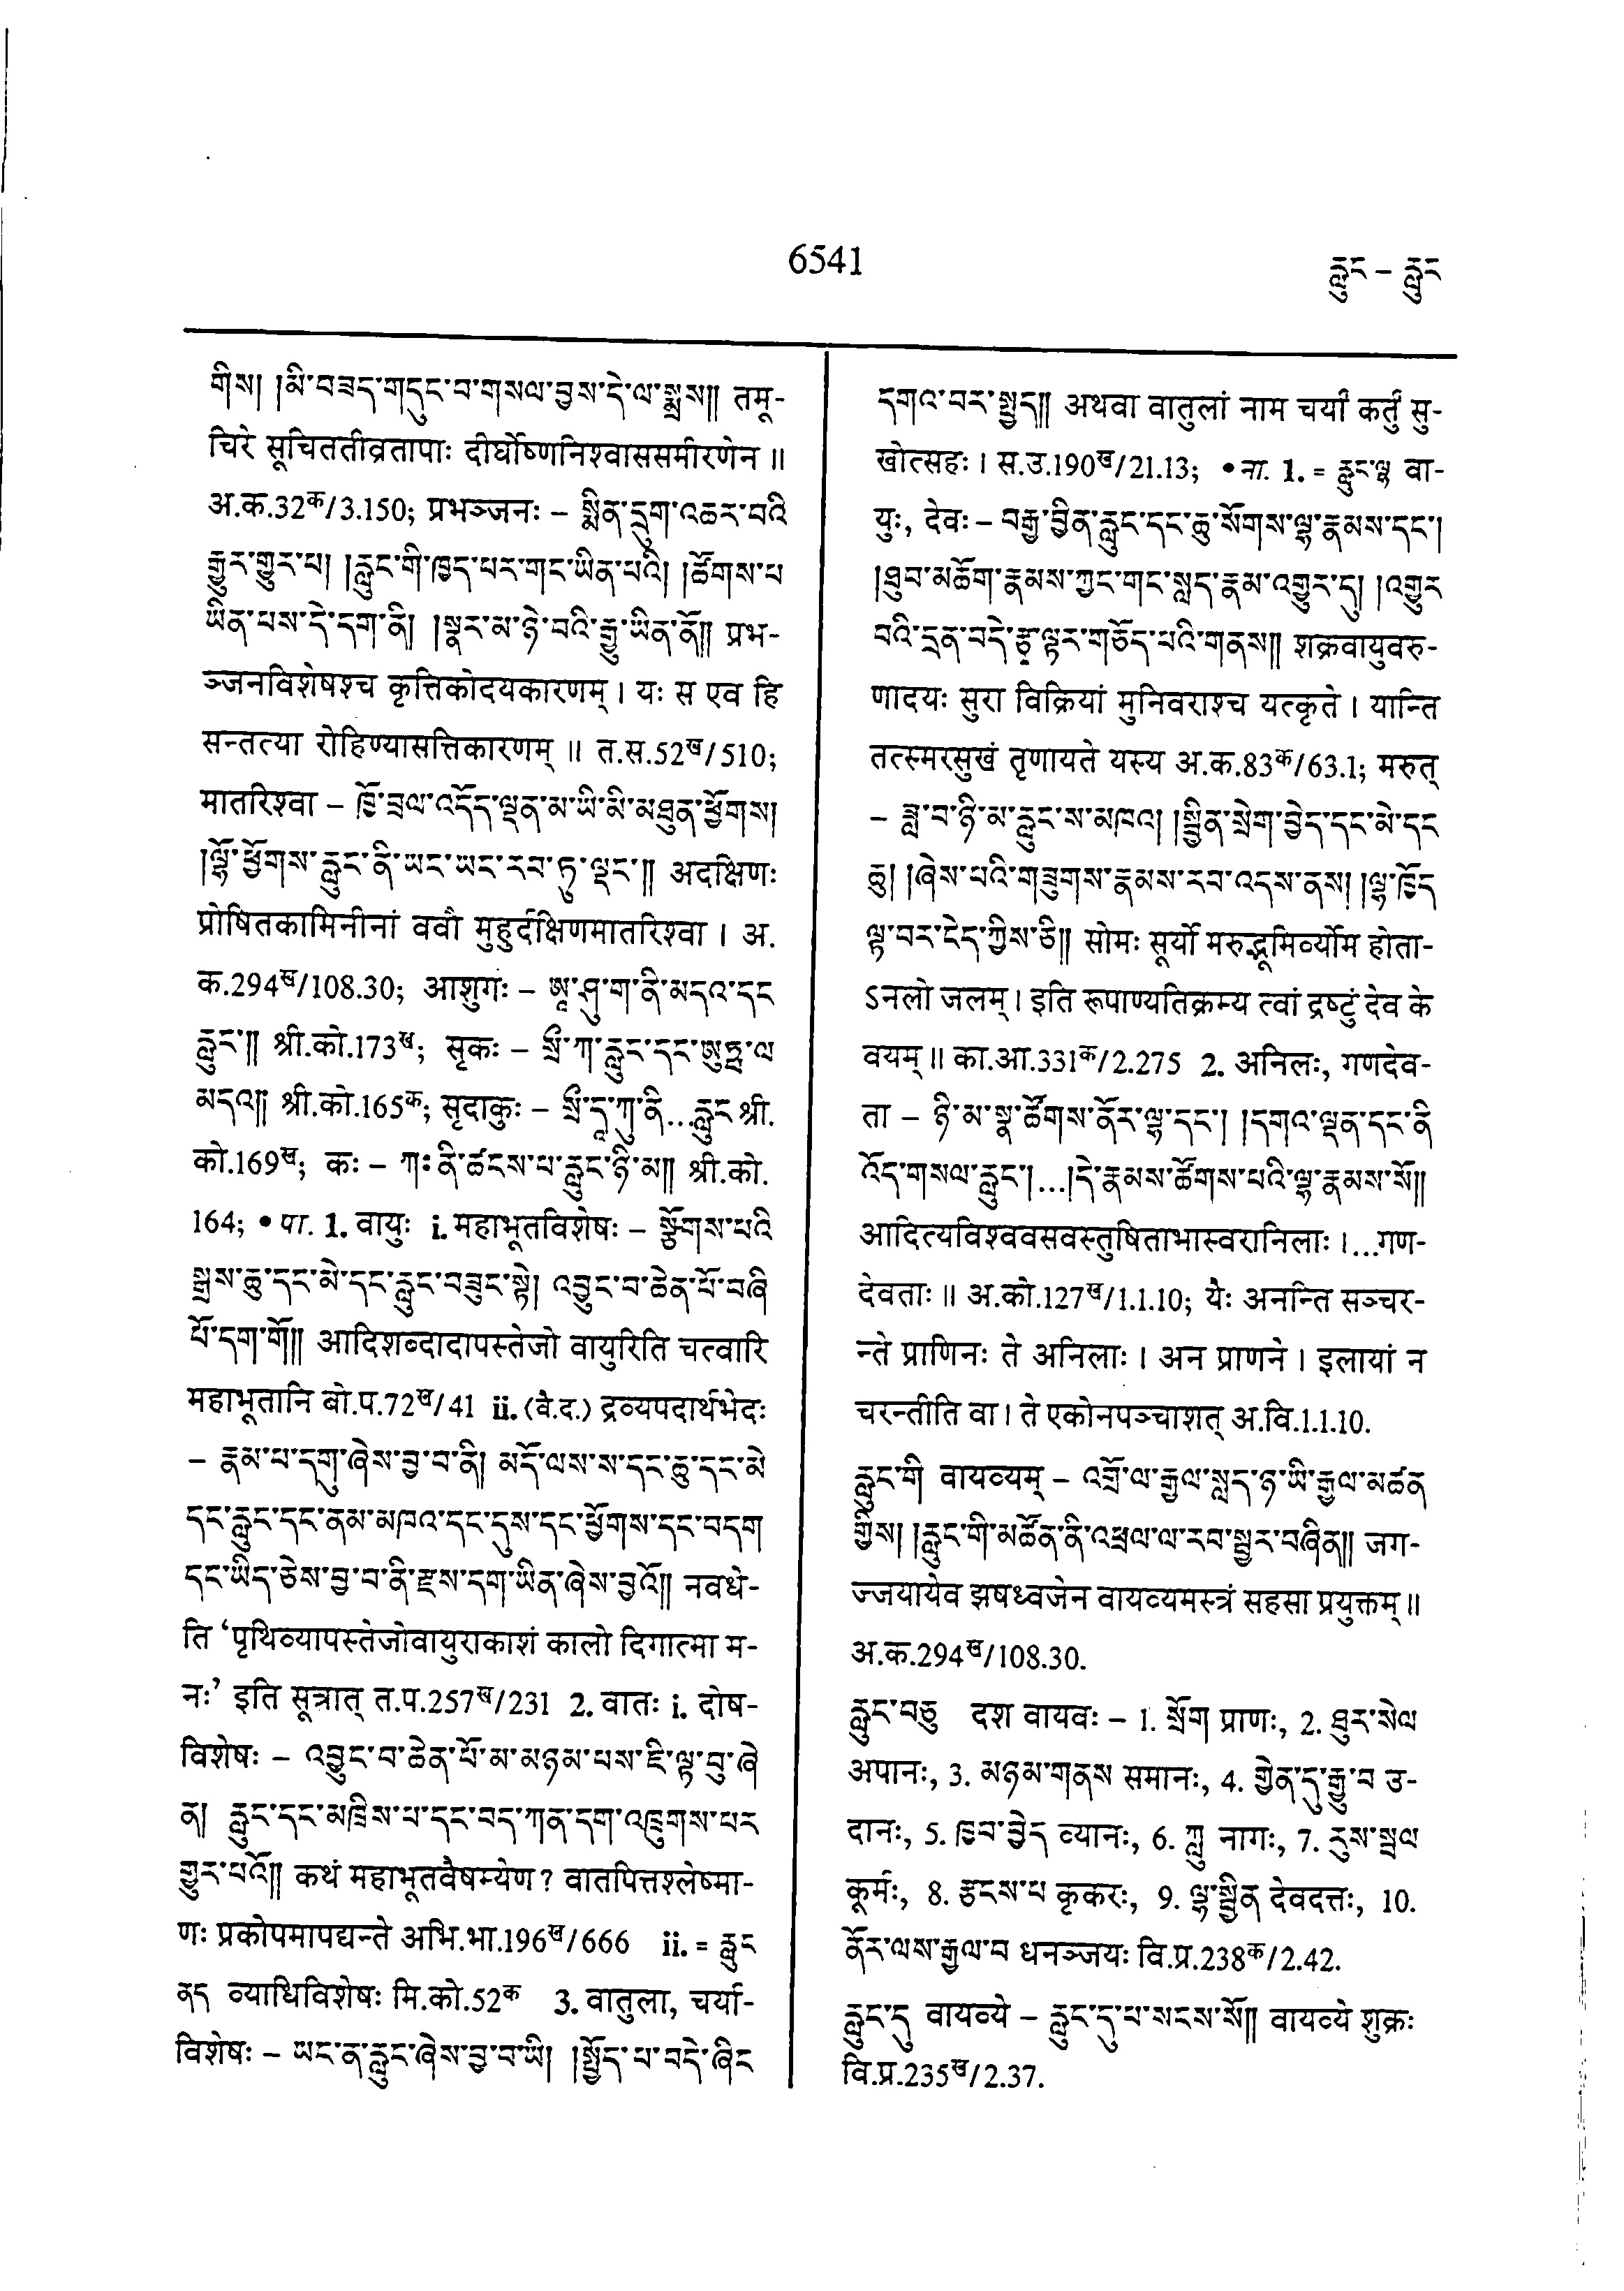 6541
རླུང – རླུང
གིས། །མི་བཟད་གདུང་བ་གསལ་བྱས་དེ་ལ་སྨྲས༎ तमू-
चिरे सूचिततीव्रतापाः दीर्घोष्णनिश्वाससमीरणेन ॥
अ.क.32क/3.150; प्रभञ्जनः – སྨིན་དྲུག་འཆར་བའི
རྒྱུར་གྱུར་པ། །རླུང་གི་ཁྱད་པར་གང་ཡིན་པའི། །ཚོགས་པ
ཡིན་པས་དེ་དག་ནི། །སྣར་མ་ཉེ་བའི་རྒྱུ་ཡིན་ནོ༎ प्रभ-
ञ्जनविशेषश्च कृत्तिकोदयकारणम् । यः स एव हि
सन्तत्या रोहिण्यासत्तिकारणम् ॥ त.स.52ख/510;
मातरिश्वा – ཁྱོ་བྲལ་འདོད་ལྡན་མ་ཡི་མི་མཐུན་ཕྱོགས།
།ལྷོ་ཕྱོགས་རླུང་ནི་ཡང་ཡང་རབ་ཏུ་ལྡང་༎ अदक्षिणः
प्रोषितकामिनीनां ववौ मुहुर्दक्षिणमातरिश्वा । अ.
क.294ख/108.30; आशुगः – ཨཱ་ཤུ་ག་ནི་མདའ་དང
རླུང་༎ श्री.को.173ख; सृकः – སྲྀ་ཀ་རླུང་དང་ཨུཏྤ་ལ
མདའ༎ श्री.को.165क; सृदाकुः – སྲྀ་དཱ་ཀུ་ནི...རླུང श्री.
को.169ख; कः – ཀཿ་ནི་ཚངས་པ་རླུང་ཉི་མ༎ श्री.को.
164; • पा. 1. वायुः i. महाभूतविशेषः – སྩོགས་པའི
སྒྲས་ཆུ་དང་མེ་དང་རླུང་བཟུང་སྟེ། འབྱུང་བ་ཆེན་པོ་བཞི
པོ་དག་གོ༎ आदिशब्दादापस्तेजो वायुरिति चत्वारि
महाभूतानि बो.प.72ख/41 ii. (वै.द.) द्रव्यपदार्थभेदः
– རྣམ་པ་དགུ་ཞེས་བྱ་བ་ནི། མདོ་ལས་ས་དང་ཆུ་དང་མེ
དང་རླུང་དང་ནམ་མཁའ་དང་དུས་དང་ཕྱོགས་དང་བདག
དང་ཡིད་ཅེས་བྱ་བ་ནི་རྫས་དག་ཡིན་ཞེས་བྱའོ༎ नवधे-
ति ‘पृथिव्यापस्तेजोवायुराकाशं कालो दिगात्मा म-
नः’ इति सूत्रात् त.प.257ख/231 2. वातः i. दोष-
विशेषः – འབྱུང་བ་ཆེན་པོ་མ་མཉམ་པས་ཇི་ལྟ་བུ་ཞེ
ན། རླུང་དང་མཁྲིས་པ་དང་བད་ཀན་དག་འཁྲུགས་པར
གྱུར་པའོ༎ कथं महाभूतवैषम्येण? वातपित्तश्लेष्मा-
णः प्रकोपमापद्यन्ते अभि.भा.196ख/666 ii. = རླུང
ནད व्याधिविशेषः मि.को.52क 3. वातुला, चर्या-
विशेषः – ཡང་ན་རླུང་ཞེས་བྱ་བ་ཡི། །སྤྱོད་པ་བདེ་ཞིང
དགའ་བར་སྤྱད༎ अथवा वातुलां नाम चर्यां कर्तुं सु-
खोत्सहः । स.उ.190ख/21.13; • ना. 1. = རླུང་ལྷ वा-
युः, देवः – བརྒྱ་བྱིན་རླུང་དང་ཆུ་སོགས་ལྷ་རྣམས་དང་།
།ཐུབ་མཆོག་རྣམས་ཀྱང་གང་སླད་རྣམ་འགྱུར་དུ། །འགྱུར
བའི་དྲན་བདེ་རྩྭ་ལྟར་གཅོད་པའི་གནས༎ शक्रवायुवरु-
णादयः सुरा विक्रियां मुनिवराश्च यत्कृते । यान्ति
तत्स्मरसुखं तृणायते यस्य अ.क.83क/63.1; मरुत्
– ཟླ་བ་ཉི་མ་རླུང་ས་མཁའ། །སྦྱིན་སྲེག་བྱེད་དང་མེ་དང
ཆུ། །ཞེས་པའི་གཟུགས་རྣམས་རབ་འདས་ནས། །ལྷ་ཁྱོད
ལྟ་བར་ངེད་ཀྱིས་ཅི༎ सोमः सूर्यो मरुद्भूमिर्व्योम होता-
ऽनलो जलम् । इति रूपाण्यतिक्रम्य त्वां द्रष्टुं देव के
वयम् ॥ का.आ.331क/2.275 2. अनिलः, गणदेव-
ता – ཉི་མ་སྣ་ཚོགས་ནོར་ལྷ་དང་། །དགའ་ལྡན་དང་ནི
འོད་གསལ་རླུང་།...།དེ་རྣམས་ཚོགས་པའི་ལྷ་རྣམས་སོ༎
आदित्यविश्ववसवस्तुषिताभास्वरानिलाः ।...गण-
देवताः ॥ अ.को.127ख/1.1.10; यैः अनन्ति सञ्चर-
न्ते प्राणिनः ते अनिलाः । अन प्राणने । इलायां न
चरन्तीति वा । ते एकोनपञ्चाशत् अ.वि.1.1.10.
རླུང་གི वायव्यम् – འགྲོ་ལ་རྒྱལ་སླད་ཉ་ཡི་རྒྱལ་མཚན
གྱིས། །རླུང་གི་མཚོན་ནི་འཕྲལ་ལ་རབ་སྦྱར་བཞིན༎ जग-
ज्जयायेव झषध्वजेन वायव्यमस्त्रं सहसा प्रयुक्तम् ॥
अ.क.294ख/108.30.
རླུང་བཅུ दश वायवः – 1. སྲོག प्राणः, 2. ཐུར་སེལ
अपानः, 3. མཉམ་གནས समानः, 4. གྱེན་དུ་རྒྱུ་བ उ-
दानः, 5. ཁྱབ་བྱེད व्यानः, 6. ཀླུ नागः, 7. རུས་སྦལ
कूर्मः, 8. རྩངས་པ कृकरः, 9. ལྷ་སྦྱིན देवदत्तः, 10.
ནོར་ལས་རྒྱལ་བ धनञ्जयः वि.प्र.238क/2.42.
རླུང་དུ वायव्ये – རླུང་དུ་པ་སངས་སོ༎ वायव्ये शुक्रः
वि.प्र.235ख/2.37.